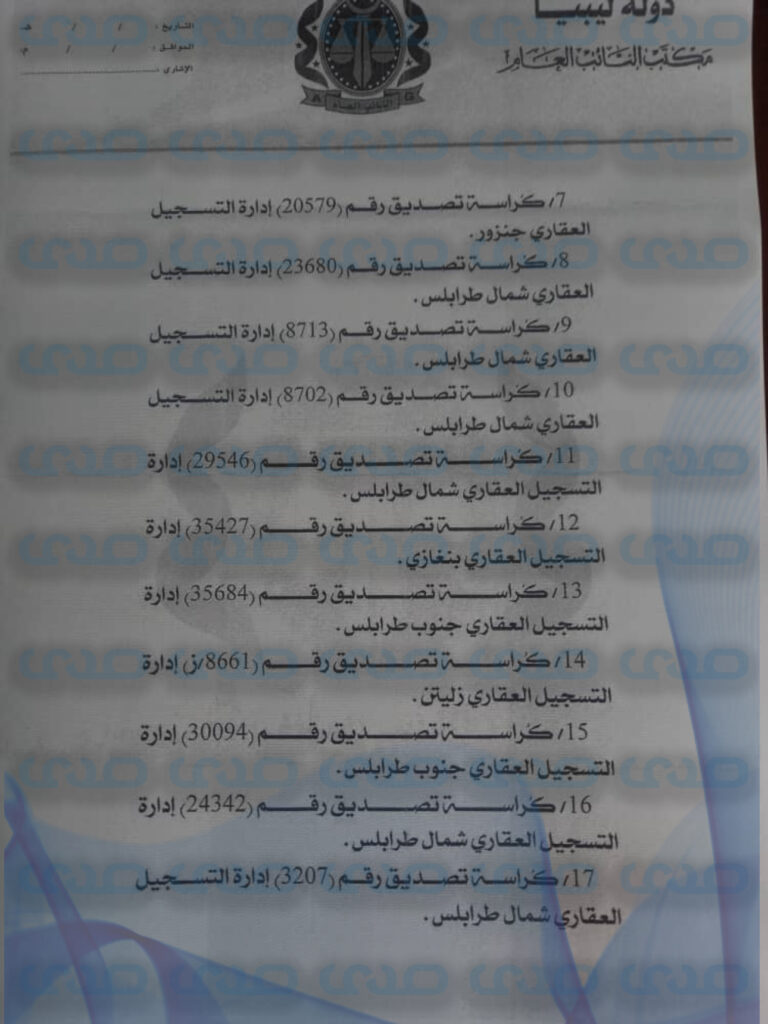 دولة ليبيا
مكتب النائب العام
التاريخ : / / هـ
الموافق : / / م
الإشاري :
A النائب العام G
7/ كراسة تصديق رقم (20579) إدارة التسجيل
العقاري جنزور.
8/ كراسة تصديق رقم (23680) إدارة التسجيل
العقاري شمال طرابلس.
9/ كراسة تصديق رقم (8713) إدارة التسجيل
العقاري شمال طرابلس.
10/ كراسة تصديق رقم (8702) إدارة التسجيل
العقاري شمال طرابلس.
11/ كراسة تصديق رقم (29546) إدارة
التسجيل العقاري شمال طرابلس.
12/ كراسة تصديق رقم (35427) إدارة
التسجيل العقاري بنغازي.
13/ كراسة تصديق رقم (35684) إدارة
التسجيل العقاري جنوب طرابلس.
14/ كراسة تصديق رقم (8661/ز) إدارة
التسجيل العقاري زليتن.
15/ كراسة تصديق رقم (30094) إدارة
التسجيل العقاري جنوب طرابلس.
16/ كراسة تصديق رقم (24342) إدارة
التسجيل العقاري شمال طرابلس.
17/ كراسة تصديق رقم (3207) إدارة التسجيل
العقاري شمال طرابلس.